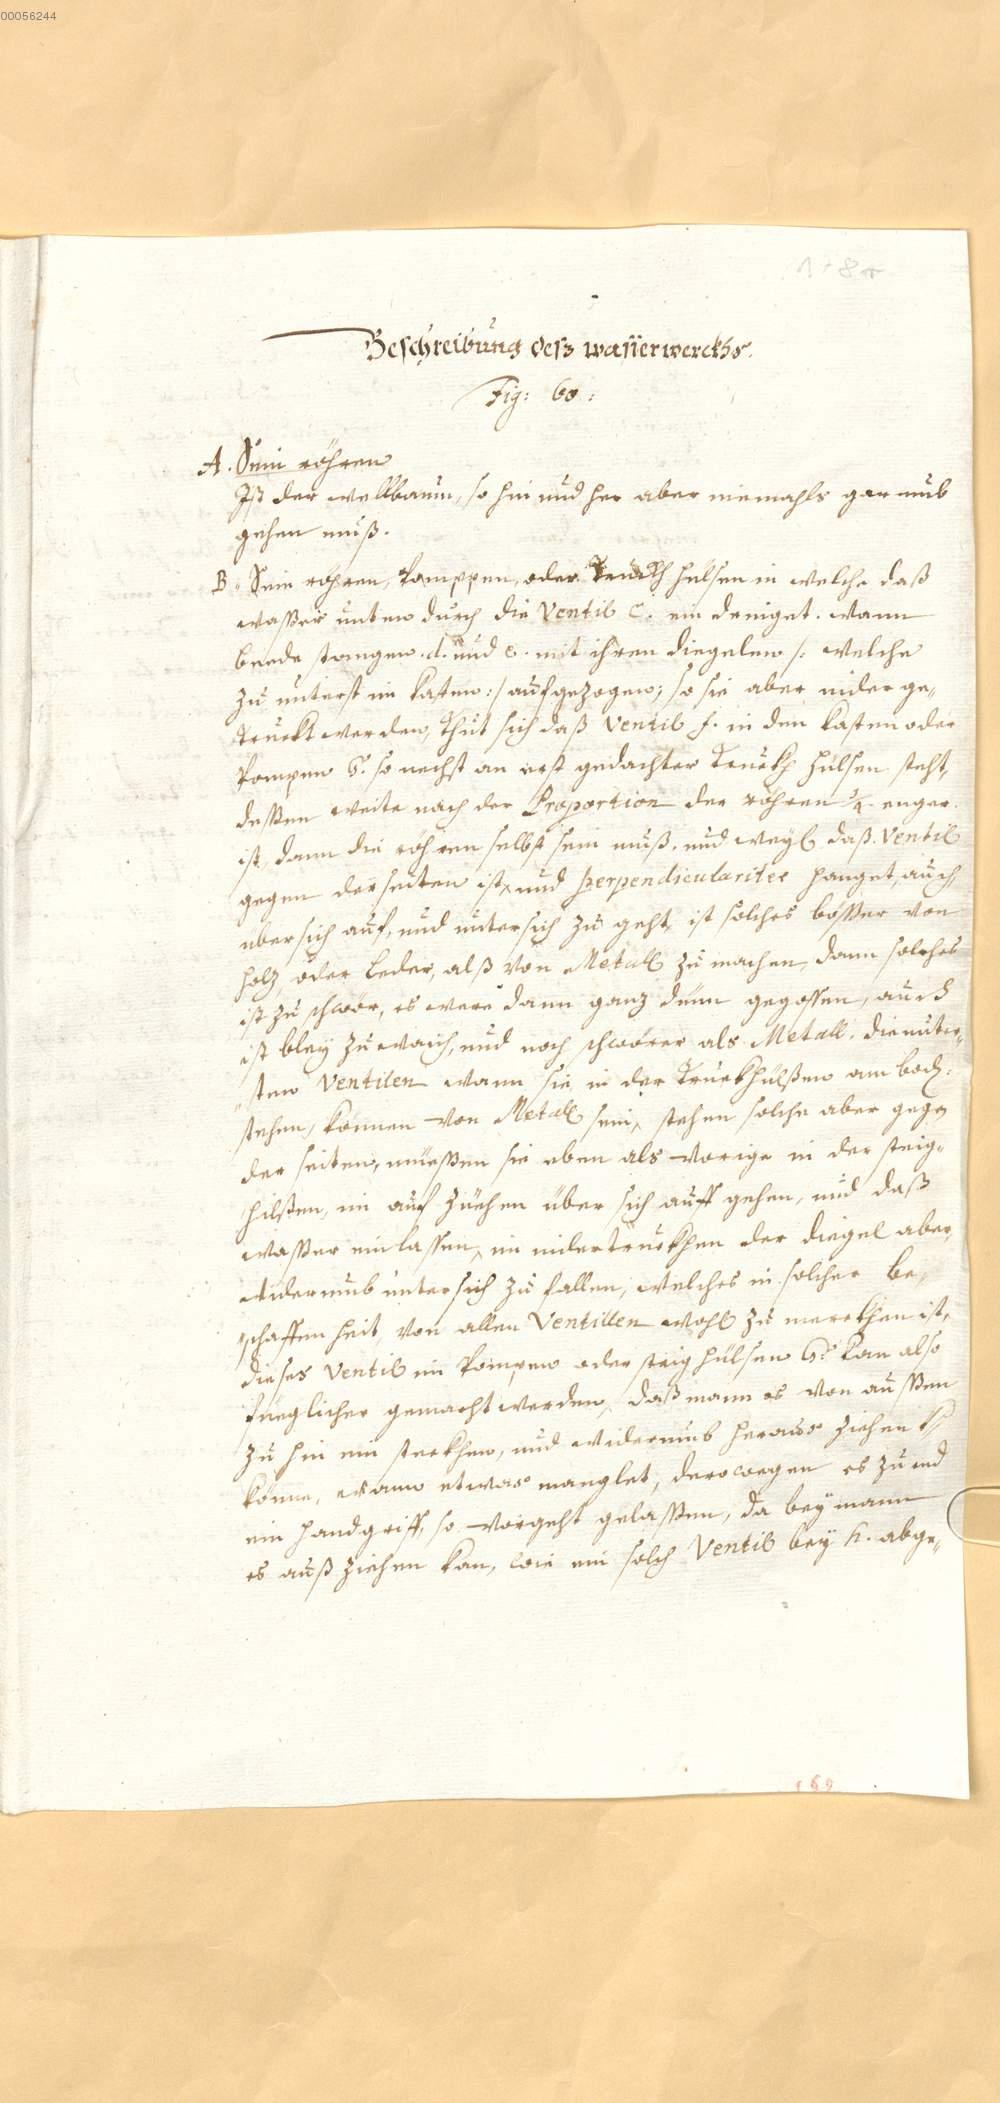 00056244
Beschreibung desz wasserwerckhs.
Fig: 60:
A. Sein röhren
Ist der wellbaum, so hin und her aber niemahls gar umb
gehen muß.
B. Sein röhren, Pomppen, oder Truckh hülsen in welche daß
waßer unten durch die Ventil C. ein dringet. wann
beede stangen .d. und e. mit ihren diegelen /: welche
zu unterst im kasten :/ aufgezogen; so sie aber nider ge„
truckt werden, thut sich daß Ventil f. in den kasten oder
Pompen G. so nechst an erst gedachter Truckh hülsen steht,
deßen weite nach der Proportion der röhren ¼ enger.
ist, dann die röhren selbst sein muß. und weyl daß Ventil
gegen der seiten ist, und perpendiculariter hanget, auch
übersich auf, und untersich zu geht, ist solches bößer von
holz oder leder, alß von Metall zu machen, dann solches
ist zu schwör, es were dann ganz dünn gegossen, auch
ist bley zu waich, und noch schwörer als Metall. die unter„
„sten Ventilen wann sie in der Truckhülßen am bod:
stehen, können von Metall sein, stehen solche aber gegen
der seiten, müeßen sie eben als vorige in der steig„
hilßen, im auf züehen über sich auff gehen, und daß
waßer einlassen, im nidertruckhen der diegel aber
widerumb untersich zu fallen, welches in solcher be„
„schaffenheit, von allen Ventillen wohl zu merckhen ist,
dieses Ventil im Pompen oder steig hülsen G. kan also
füeglicher gemacht werden, daß mann es von außen
zu hin ein steckhen, und widerumb heraus ziehen
könne, wann etwas manglet, derowegen es zu end
ein handgriff, so vorgeht gelaßen, da bey mann
es auß ziehen kan, wie ein solch Ventil bey h. abge„